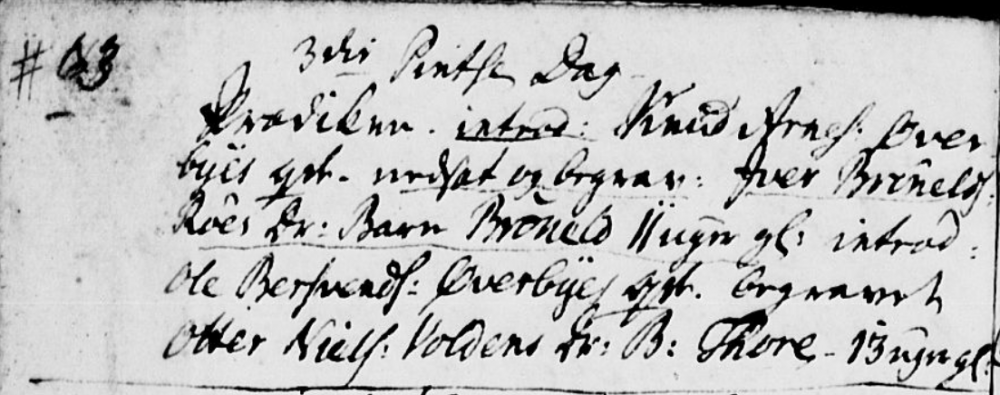 # 83
3die Pintse Dag
Prædiken. introd: Knud Arnes: Over
byes qv. nedsat og begrav: Iver Brŭnelds:
Röes Dr: Barn Brŭneld 11 ugr gl: introd:
Ole Bersvends: Overbyes qv. begravet
Otter Niels: Voldens Dr: B: Thore - 13 ugr gl: